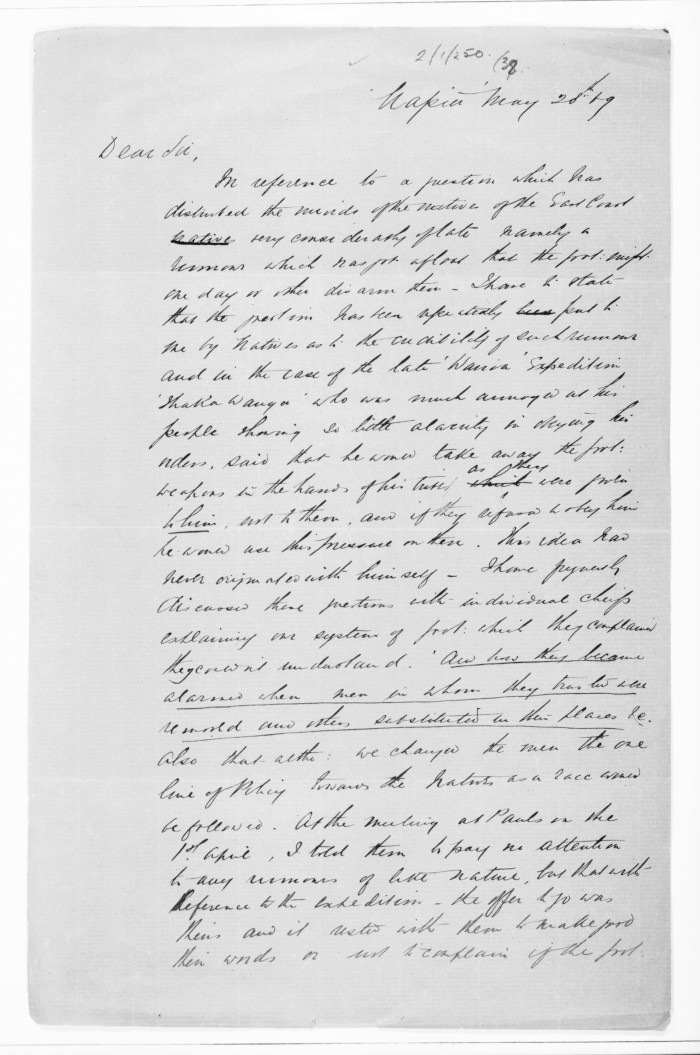 2/1/250.
Napier May 28th 69
Dear Sir,
In reference to a question which has
disturbed the minds of the natives of the East Coast
natives very considerably of late namely a
rumour which has got afloat that the Govt: might
one day or other disarm them – I have to state
that the question has been repeatedly been put to
me by Natives as to the credibility of such rumour
and in the case of the late 'Wairoa' Expedition
'Ihaka Wanga' who was much annoyed at his
people showing so little alacrity in obeying his
orders, said that he would take away the Govt:
weapons in the hands of his tribe, which as they were given
to him, not to them, and if they refused to obey him
he would use this pressure on them. This idea had
never originated with himself – I have frequently
discussed these questions with individual chiefs
explaining our system of Govt: which they complained
they could not understand. And how they became
alarmed when men in whom they trusted were
removed and others substituted in their places &c.
Also that altho: we changed the men the one
line of Policy towards the Natives as a race would
be followed. At the meeting at Pauls on the
1st April, I told them to pay no attention
to any rumours of like nature, but that with
Reference to the expedition – the offer to go was
theirs and it rested with them to make good
their words or not to complain if the Govt: